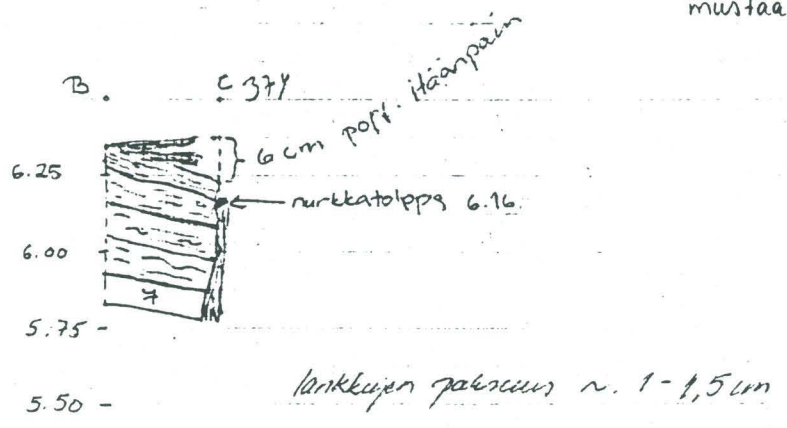 mustaa
B C 374
6 cm poft. itäänpäin
6.25
nurkkatolppa 6.16
6.00
7
5.75
lankkujen paksuus n. 1-1,5 cm
5.50